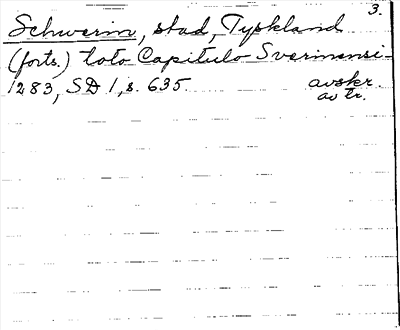 3.
Schwerin, stad, Tyskland
(forts.) toto Capitulo Sverinensi
1283, SD 1, s. 635. avskr.
av tr.